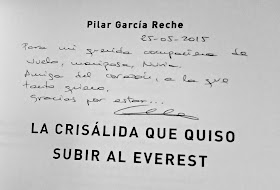 Pilar García Reche
25-05-2015
Para mi querida compañera de
vuelo, mariposa, Nuria
Amiga del corazón, a la que
tanto quiero.
Gracias por estar...
LA CRISÁLIDA QUE QUISO
SUBIR AL EVEREST